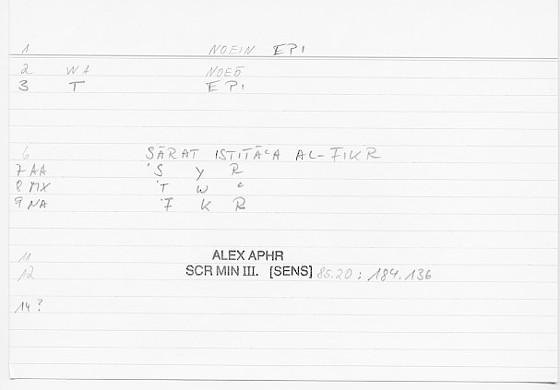 1 NOEIN EPI
2 WA NOEŌ
3 T EPI
6 SĀRAT ISTITĀʿA AL-FIKR
7 AA 'S Y R
8 MX 'T W ʿ
9 NA 'F K R
11 ALEX APHR
12 SCR MIN III. [SENS] 85.20 : 184.136
14 ?